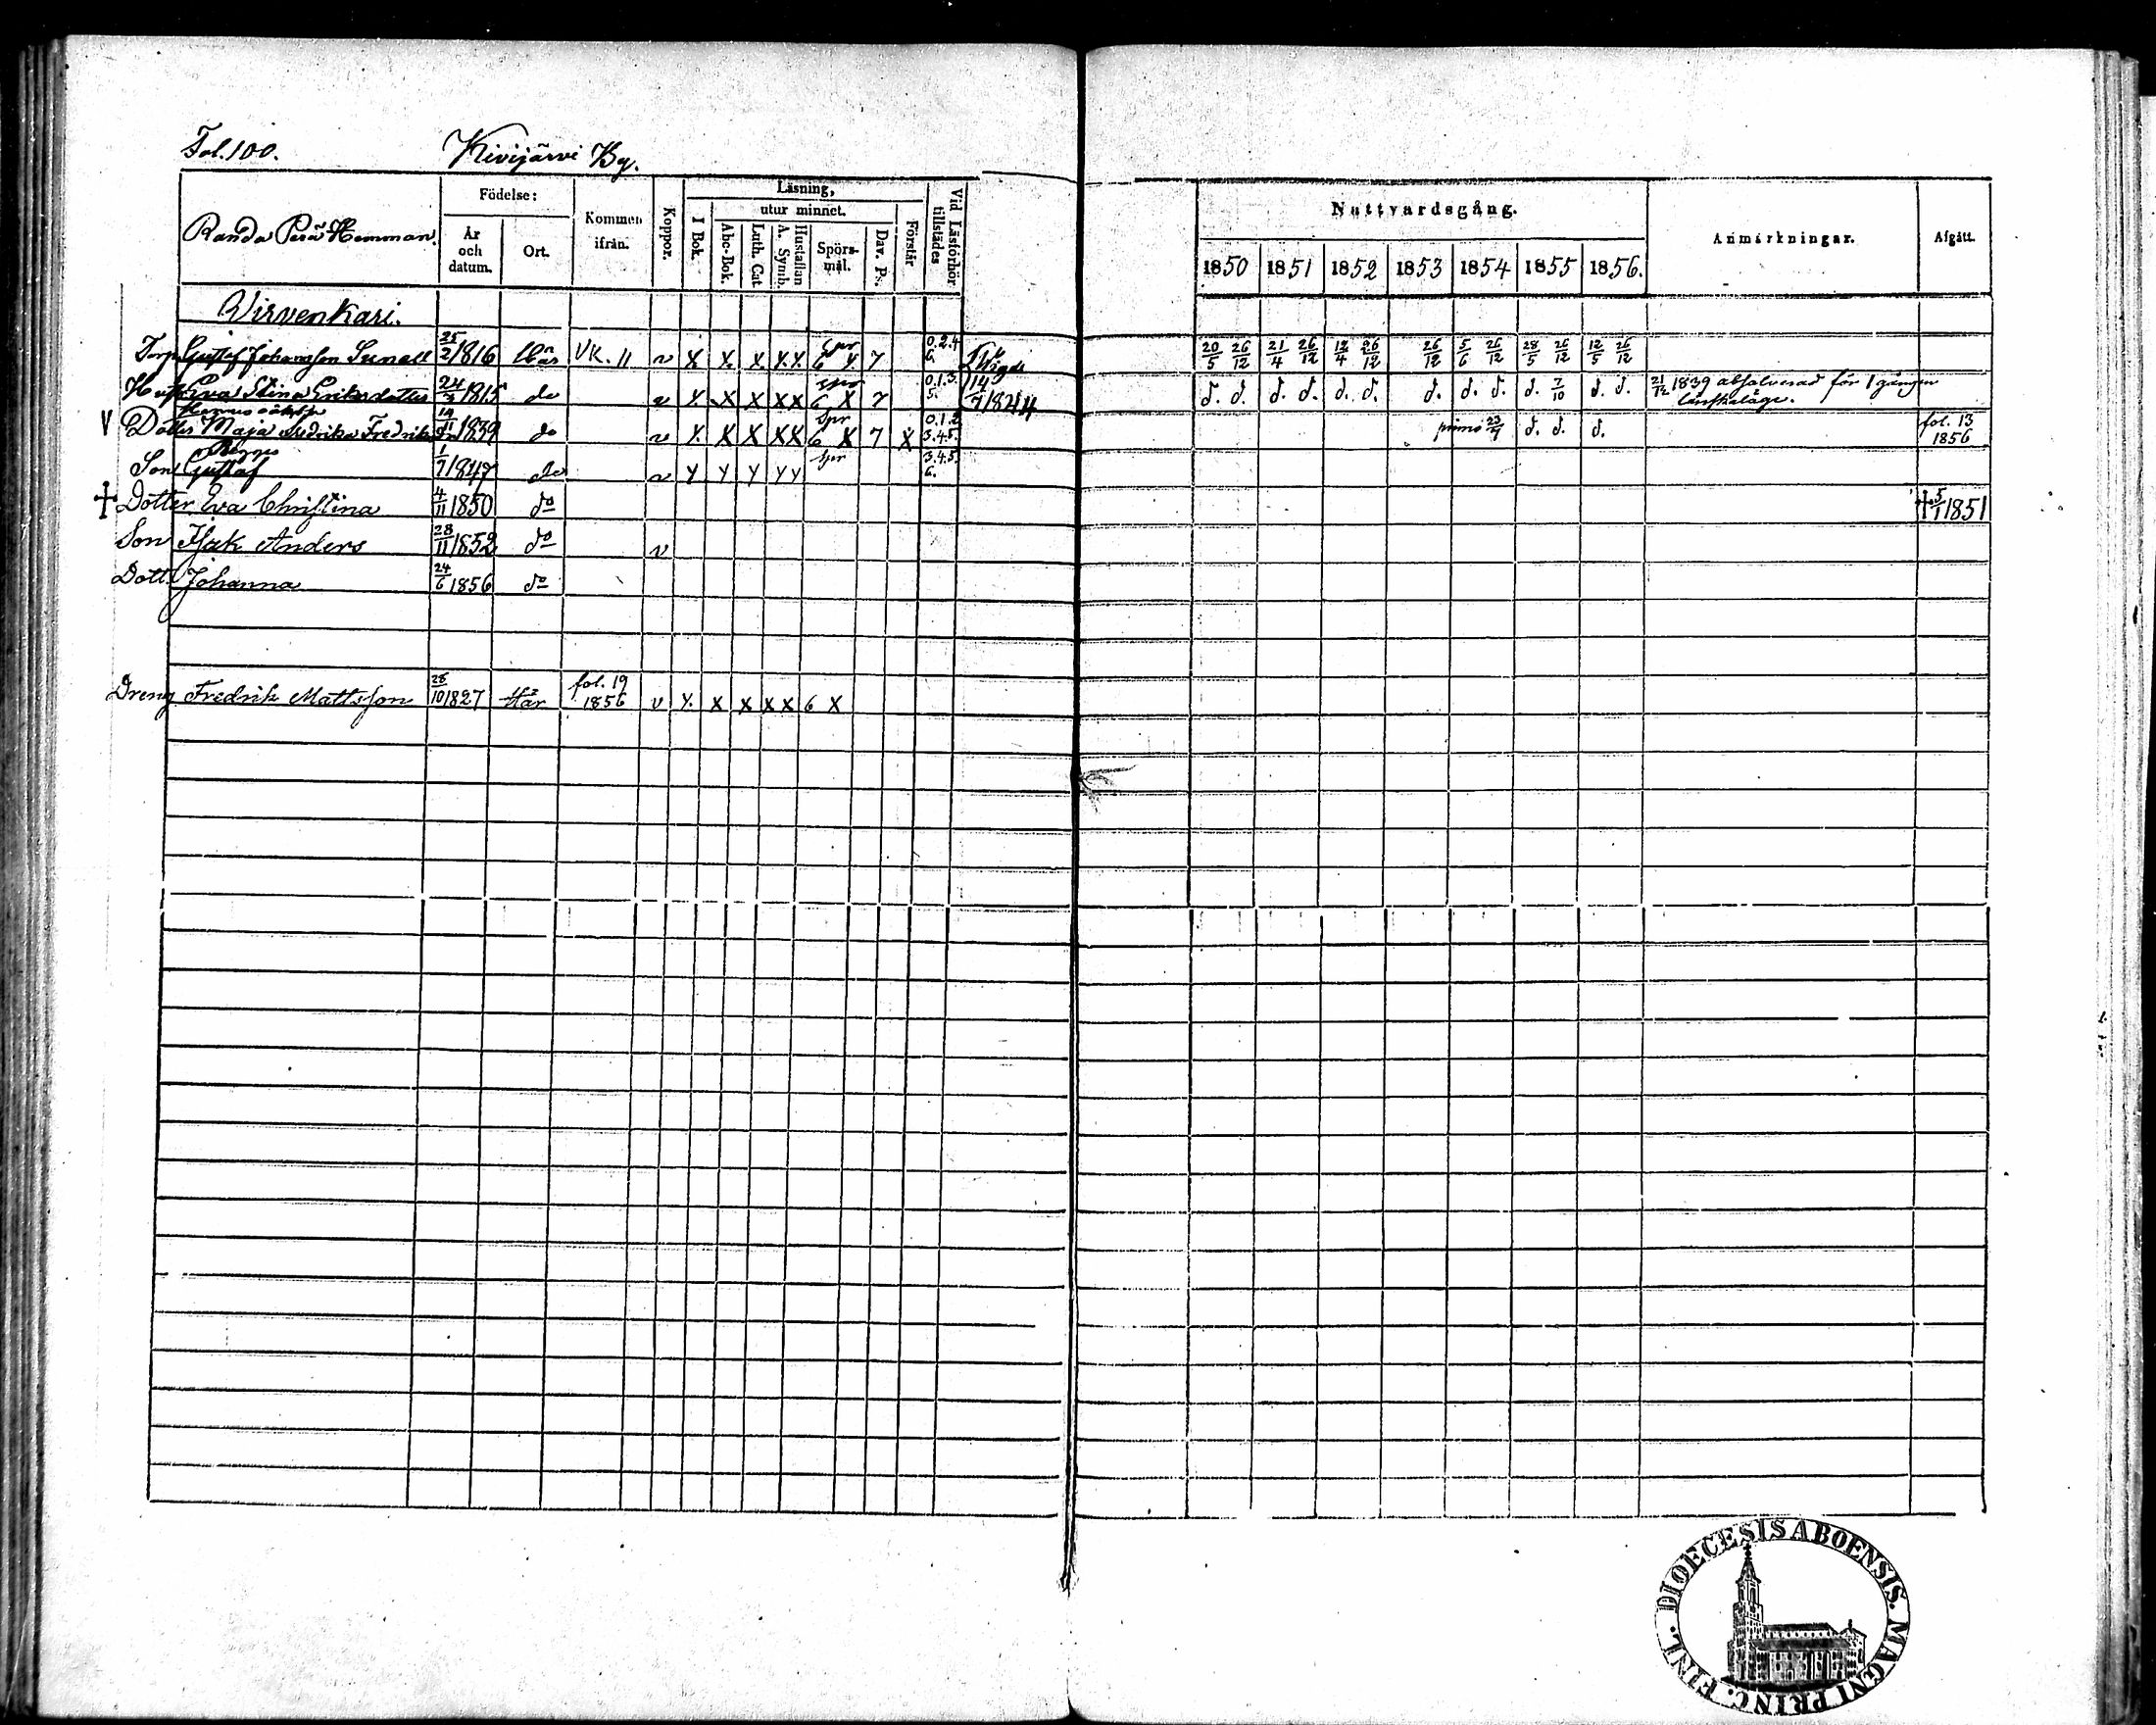 Fol. 100. Kivijärvi By.
Randa Perä Hemman.
Födelse:
År och datum.
Ort.
Kommen ifrån.
Koppor.
Läsning,
I Bok.
utur minnet.
Abc-Bok.
Luth. Cat
A. Symb.
Hustaflan
Spörs-mål.
Dav. Ps.
Förstår
Vid Läsförhör tillstädes
Nattvardsgång.
1850 1851 1852 1853 1854 1855 1856.
Anmärkningar.
Afgått.
Virvenkari.
Torp Gustaf Johansson 25/2 1816 VK. 11 v X X X X X 6 spr X 7 0.2.4 6. Vigde 20/5 26/12 21/4 26/12 12/4 26/12 26/12 5/6 26/12 28/5 26/12 12/5 26/12
Hust Eva Stina Eriksdotter 24/3 1815 do v X X X X X 6 spr X 7 0.1.3. 5. 14/7 1844 d. d. d. d. d. d. d. d. d. d. 7/10 d. d. 21/12 1839 absolverad för 1 gången lönskaläge.
V Dotter Maja Fredrika 1839 do v X X X X X 6 spr X 7 X 0.1.2 3.4.5. primo d. d. d. fol. 13 1856
Son Gustaf 1/7 1847 do v X X X X X spr 3.4.5. 6.
† Dotter Eva Christina 4/11 1850 do † 5/1 1851
Son Isak Anders 28/11 1852 do v
Dott. Johanna 24/6 1856 do
Dreng Fredrik Mattsson 28/10 1827 Här fol. 19 1856 v X. X X X X 6 X
FINL. DIOECESIS ABOENSIS. MAGNI PRINC.